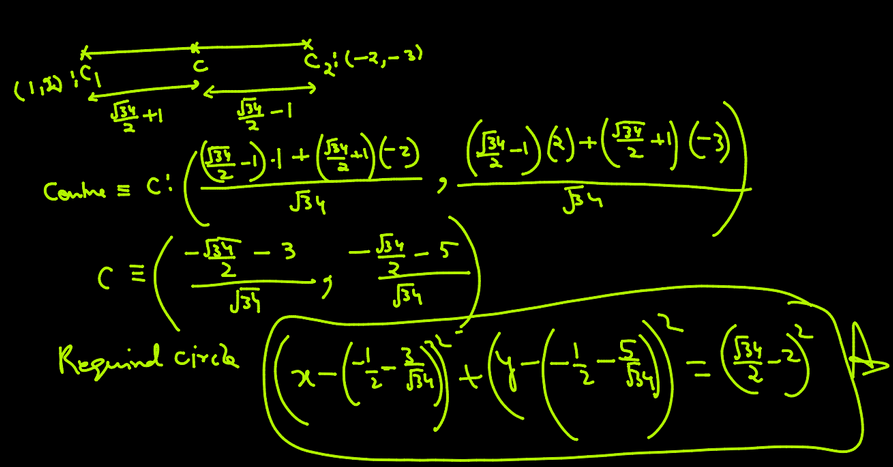 C₁ C C₂:(-2,-3)
(1,2):
√34/2+1 √34/2-1
Centre ≡ C: (((√34/2-1)·1+(√34/2+1)(-2))/√34, ((√34/2-1)(2)+(√34/2+1)(-3))/√34)
C ≡ ((-√34/2-3)/√34, (-√34/2-5)/√34)
Required circle (x-(-1/2-3/√34))²+(y-(-1/2-5/√34))²=(√34/2-2)² A